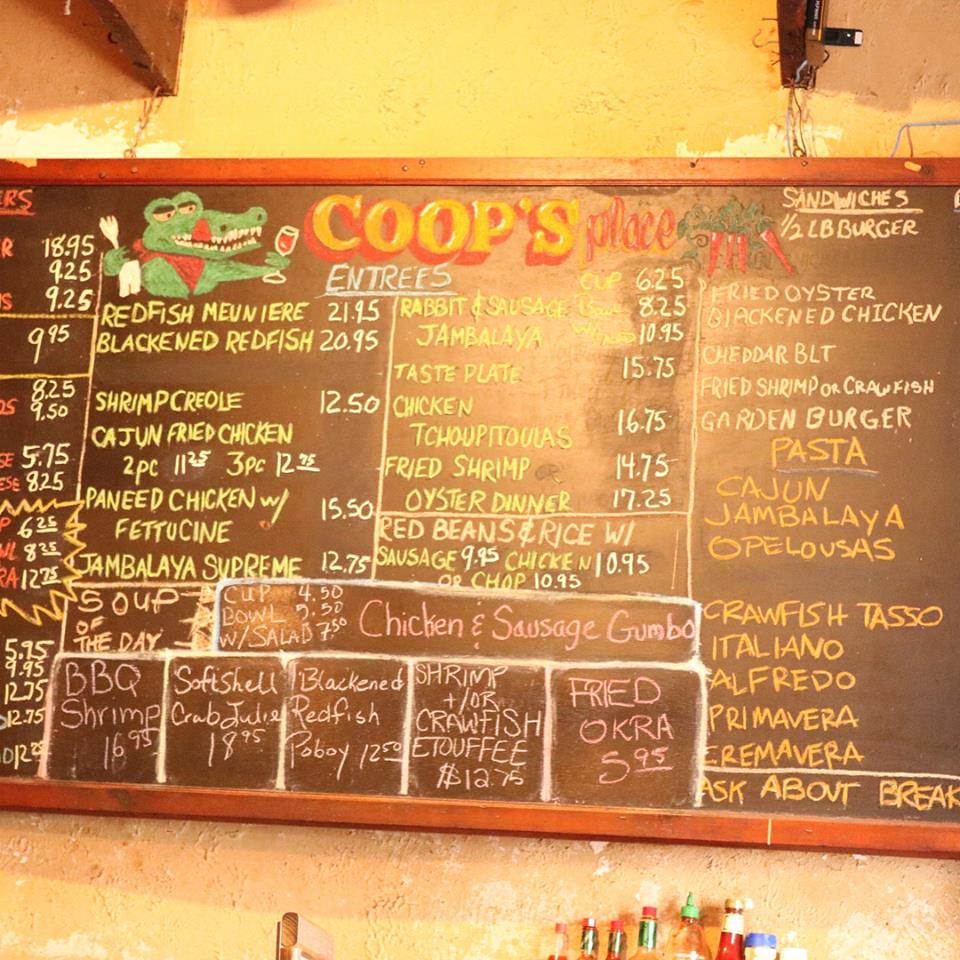 ERS
18.95
9.25
9.25
9.95
8.25
9.50
5.75
8.25
6.25
8.25
12.75
5.95
9.95
12.75
12.75
COOP'S place
ENTREES
REDFISH MEUNIERE 21.95
BLACKENED REDFISH 20.95
SHRIMP CREOLE 12.50
CAJUN FRIED CHICKEN
2pc 11.25 3pc 12.75
PANEED CHICKEN W/ 15.50
FETTUCINE
JAMBALAYA SUPREME 12.75
CUP 6.25
RABBIT & SAUSAGE Bowl 8.25
JAMBALAYA 10.95
TASTE PLATE 15.75
CHICKEN
TCHOUPITOULAS 16.75
FRIED SHRIMP 14.75
OYSTER DINNER 17.25
RED BEANS & RICE W/
SAUSAGE 9.95 CHICKEN 10.95
OR CHOP 10.95
SOUP
OF
THE DAY
CUP 4.50
BOWL 5.50
W/SALAD 7.50
Chicken & Sausage Gumbo
BBQ
Shrimp
16.95
Softshell
Crab Julie
18.95
Blackened
Redfish
Poboy 12.50
SHRIMP
+/OR
CRAWFISH
ETOUFFEE
$12.75
FRIED
OKRA
5.95
SANDWICHES
1/2 LB BURGER
FRIED OYSTER
BLACKENED CHICKEN
CHEDDAR BLT
FRIED SHRIMP OR CRAWFISH
GARDEN BURGER
PASTA
CAJUN
JAMBALAYA
OPELOUSAS
CRAWFISH TASSO
ITALIANO
ALFREDO
PRIMAVERA
CREMAVERA
ASK ABOUT BREAK